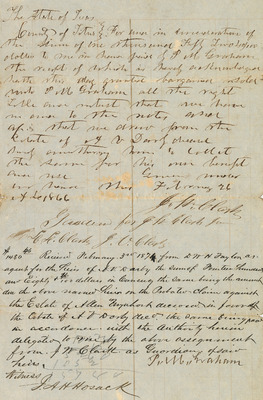 The State of Texas
County of Titus For and in consideration of
the Sum of one thousand Fifty Two dollars
to us in hand paid by P. M. Graham
the receipt of which is hereby acknowledged
have this day granted bargained sold
unto P. M. Graham all the right
title and interest that we have
in and to the notes and
that we draw from the
Estate of A. V. Darby deceased
And authorize him to collect
the same for his own benefit
and use Given under
our hands this February 26
A.D. 1866
J. W. Clark
Guardian for J. W. Clark
E. L. Clark, J. C. Clark
Received February 3rd from D. W. H. Taylor as
agent for the Heirs of A. V. Darby the Sum of Fourteen Hundred
and Eighty dollars in Currency the same being the amount
due the above named Heirs on the Probate Claim against
the Estate of Allen Urquhart deceased in favor of
the Estate of A. V. Darby decd, the same being paid
in accordance with the Authority herein
delegated to me by the above assignment
from J. W. Clark as Guardian of said
heirs,
P. M. Graham
Witness
J. A. H. Hosack